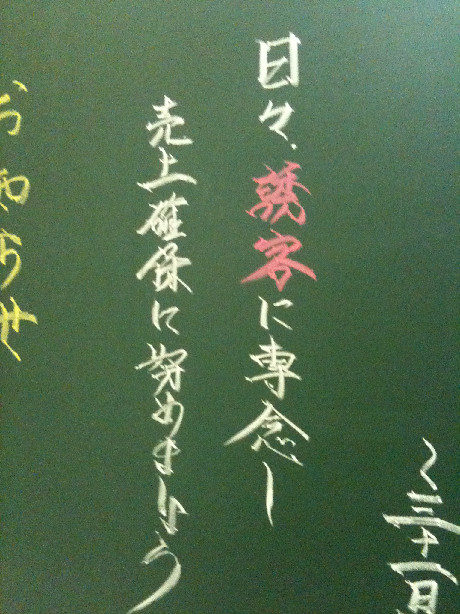 〜三十一日
日々、誘客に専念し
売上確保に努めましょう
お知らせ